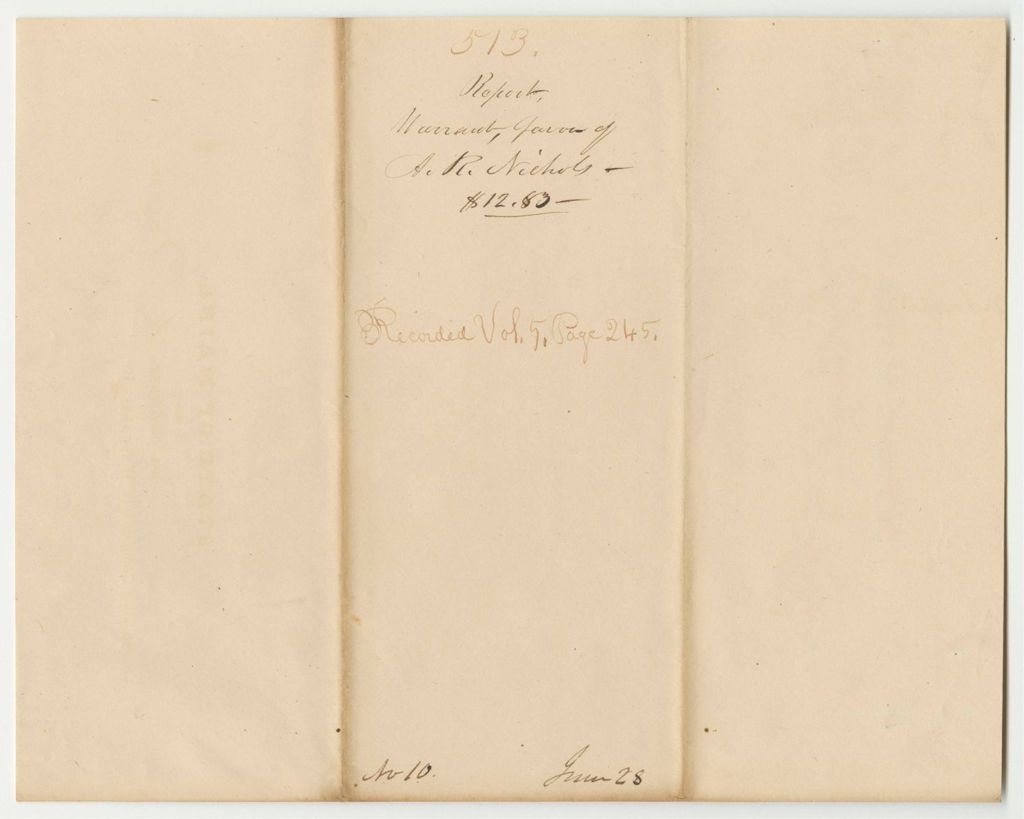 513.
Report,
Warrant, favor of
A. R. Nichols —
$12.83 —
Recorded Vol. 5, Page 245.
No 10. June 28